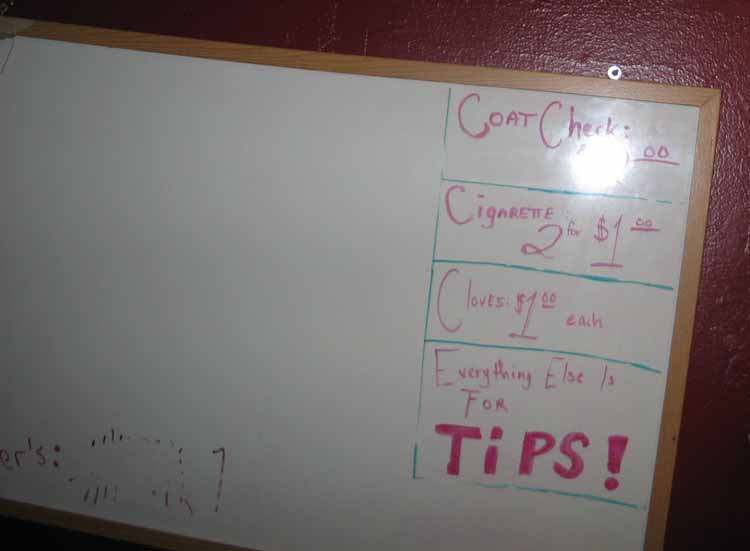 COAT Check:
00
CigARETTE
2 for $1 00
Cloves: $1 00 each
Everything Else Is
FOR
TiPS!
er's: